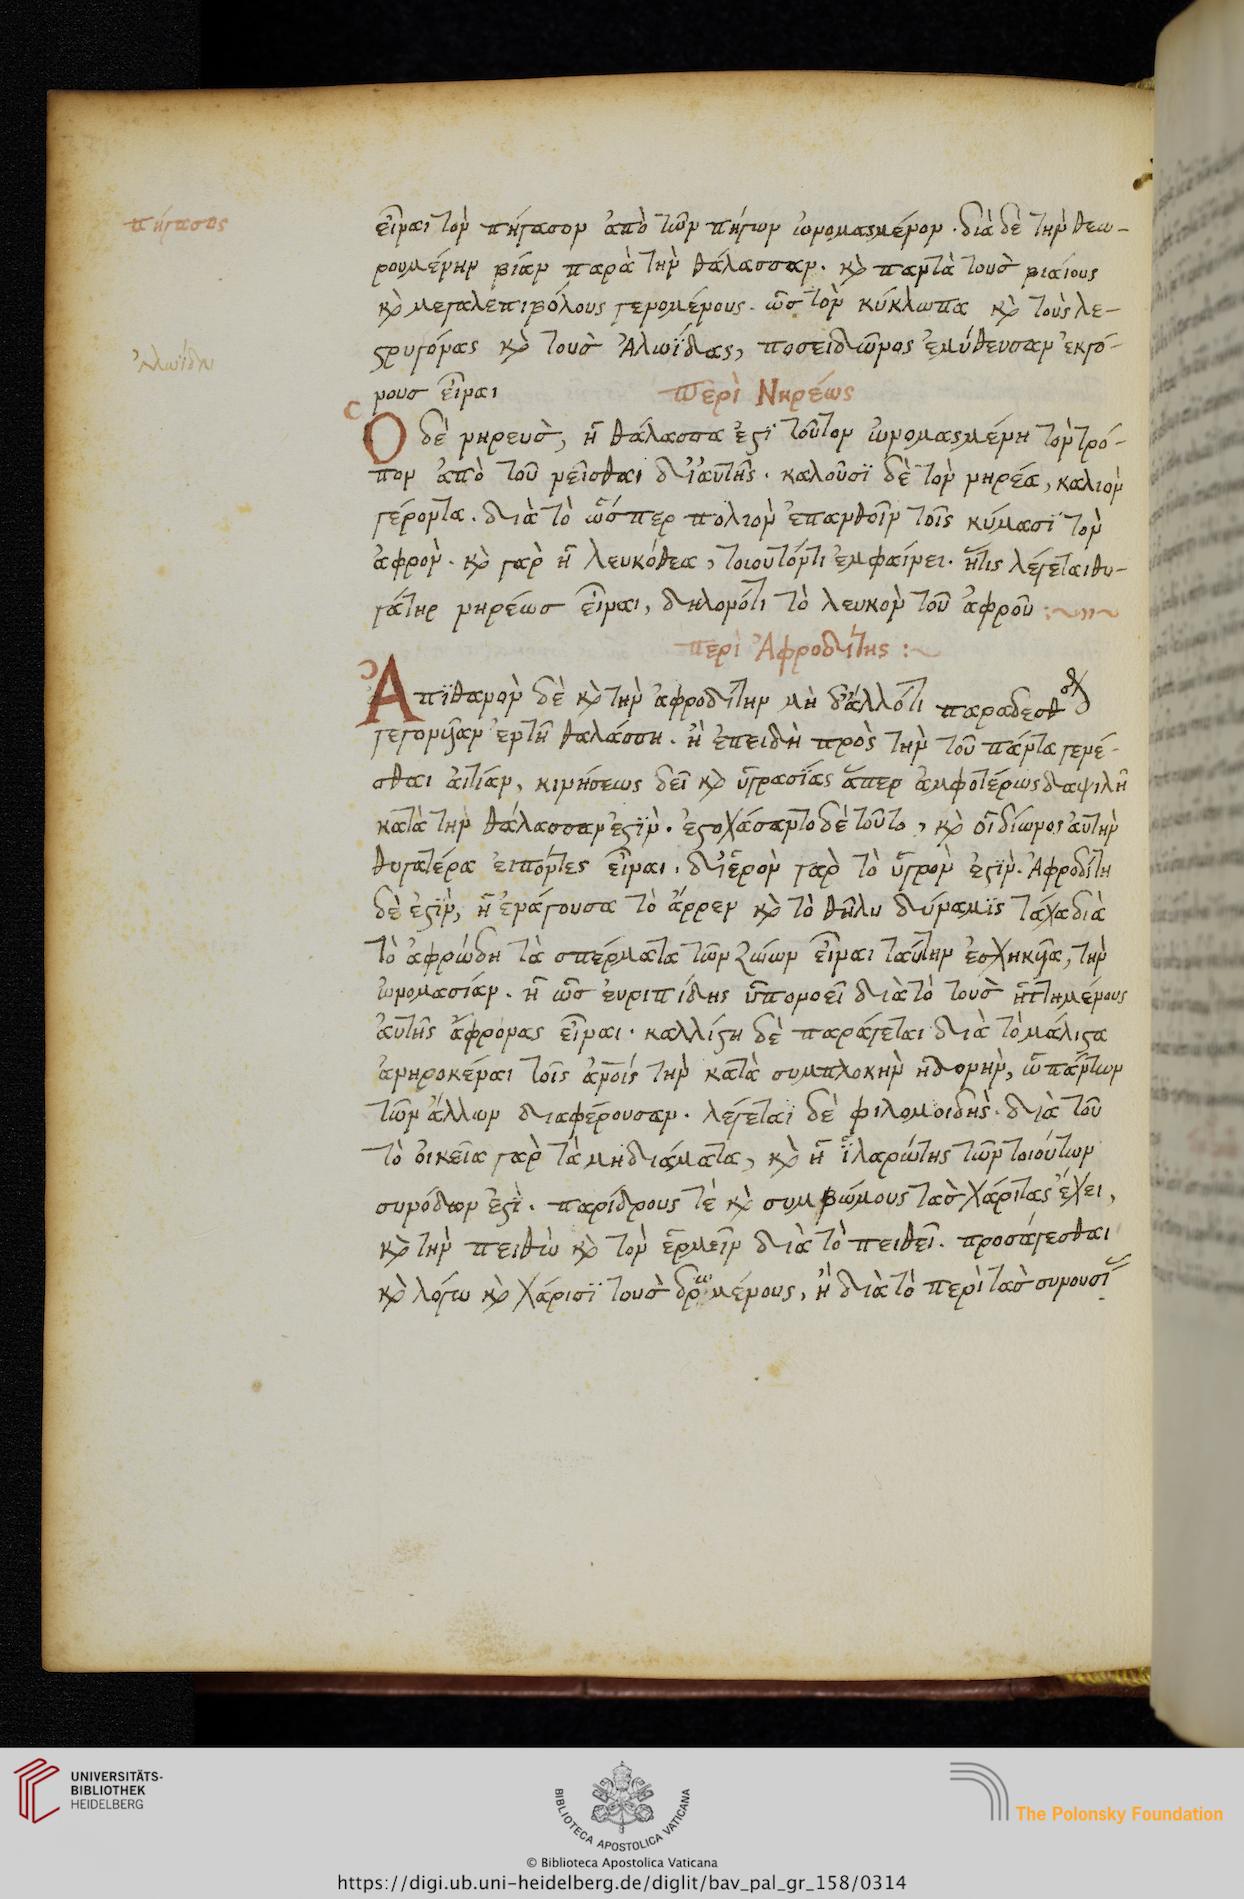 πήγασος
εἶναι τὸν πήγασον ἀπὸ τῶν πήγων ὠνομασμένον· διὰ δὲ τὴν θεω-
ρουμένην βίαν παρὰ τὴν θάλασσαν· καὶ πάντὰς τοὺς βιαίους
καὶ μεγαλεπιβόλους γενομένους· ὡς τὸν κύκλωπα καὶ τοὺς λε-
στρυγόνας καὶ τοὺς Ἀλωΐδας, ποσειδῶνος ἐμύθευσαν ἐκγό-
Ἀλωΐδη
νους εἶναι
περὶ Νηρέως
Ὁ δὲ νηρεὺς, ἡ θάλασσα ἐστὶ τοῦτον ὠνομασμένη τὸν τρό-
πον ἀπὸ τοῦ νεῖσθαι δι' αὐτῆς· καλοῦσϊ δὲ τὸν νηρέα, καλιὸν
γέροντα· διὰ τὸ ὥσπερ πολιὸν ἐπανθοῖν τοῖς κύμασϊ τὸν
ἀφρὸν· καὶ γὰρ ἡ λευκόθεα, τοιοῦτόντι ἐμφαίνει· ἥτις λέγεται θυ-
γάτηρ νηρέως εἶναι, δηλονότι τὸ λευκὸν τοῦ ἀφροῦ :~
περὶ Ἀφροδίτης :~
Ἀπϊθανὸν δὲ καὶ τὴν ἀφροδίτην μὴ δἄλλότι
γεγονυῖαν ἐν τῆ θαλάσση· ἢ ἐπειδὴ πρὸς τὴν τοῦ πάντα γενέ-
σθαι αἰτίαν, κινήσεως δεῖ καὶ ὑγρασίας ἅπερ ἀμφοτέρως δαψιλῆ
κατὰ τὴν θάλασσαν ἐστϊν· ἐστοχάσαντο δὲ τοῦτο, καὶ οἱ δίωνος αὐτὴν
θυγατέρα εἰπόντες εἶναι· διερὸν γὰρ τὸ ὑγρὸν ἐστϊν· Ἀφροδίτη
δὲ ἐστϊν, ἡ ἐνάγουσα τὸ ἄρρεν καὶ τὸ θῆλυ δύναμϊς τάχα διὰ
τὸ ἀφρώδη τὰ σπέρματα τῶν ζώων εἶναι ταύτην ἐσχηκυῖα, τὴν
ὠνομασίαν· ἢ ὡς εὐριπίδης ὑπονοεῖ διὰ τὸ τοὺς ἡττημένους
αὐτῆς ἄφρονας εἶναι· καλλίστη δὲ παράγεται διὰ τὸ μάλιστα
ἀνηροκέναι τοῖς ἀνοίς τὴν κατὰ συμπλοκὴν ἡδονὴν, ὡ πάντων
τῶν ἄλλων διαφέρουσαν· λέγεταϊ δὲ φιλομοιδὴς· διὰ τοῦ
τὸ οἰκεῖα γὰρ τὰ μηδιάματα, καὶ ἡ ἱλαρώτης τῶν τοιούτων
συνόδων ἐστὶ· παρίδρους τὲ καὶ συμβώμους τὰς χάριτας ἔχει,
καὶ τὴν πειθὼ καὶ τὸν ἑρμεῖν διὰ τὸ πειθεῖ· προσάγεσθαι
καὶ λόγω καὶ χάρισϊ τοὺς δρωμένους, ἢ διὰ τὸ περὶ τὰς συνουσί
UNIVERSITÄTS-
BIBLIOTHEK
HEIDELBERG
BIBLIOTECA APOSTOLICA VATICANA
The Polonsky Foundation
© Biblioteca Apostolica Vaticana
https://digi.ub.uni-heidelberg.de/diglit/bav_pal_gr_158/0314